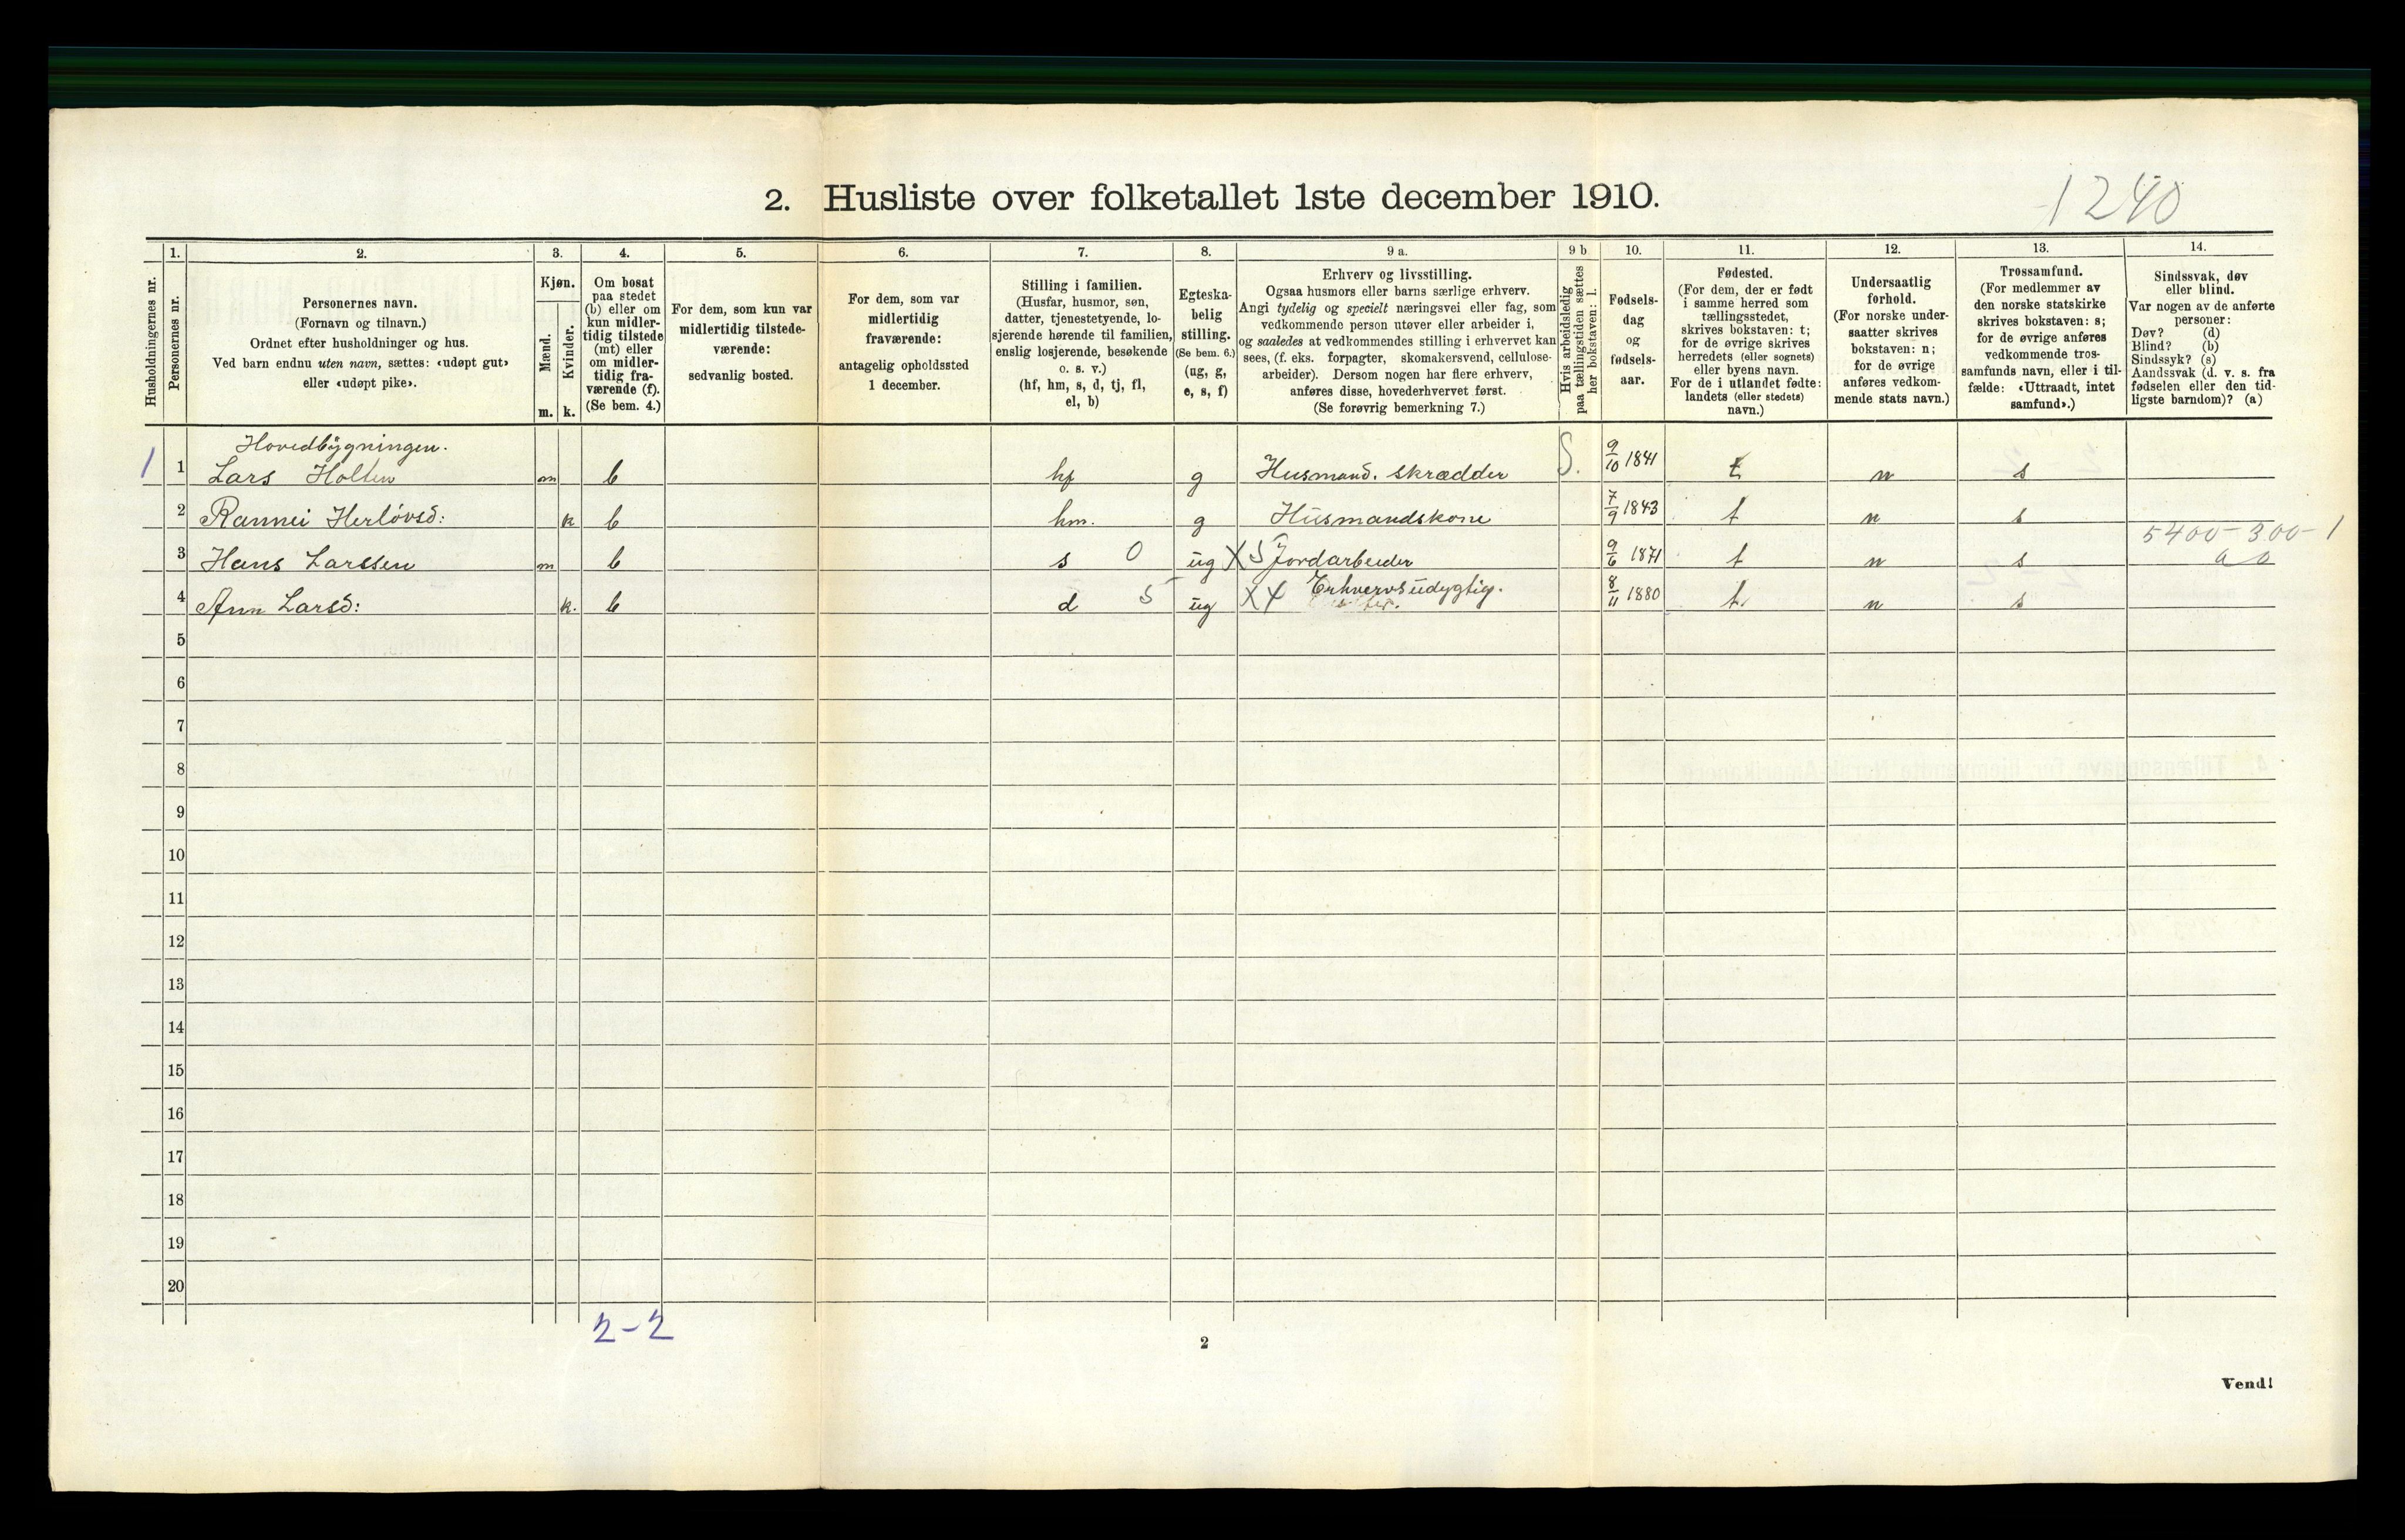 1240
2. Husliste over folketallet 1ste december 1910.
1. 2. 3. 4. 5. 6. 7. 8. 9 a. 9 b 10. 11. 12. 13. 14.
Husholdningernes nr.
Personernes nr.
Personernes navn.
(Fornavn og tilnavn.)
Ordnet efter husholdninger og hus.
Ved barn endnu uten navn, sættes: «udøpt gut»
eller «udøpt pike».
Kjøn.
Mænd.
Kvinder.
m. k.
Om bosat
paa stedet
(b) eller om
kun midler-
tidig tilstede
(mt) eller
om midler-
tidig fra-
værende (f).
(Se bem. 4.)
For dem, som kun var
midlertidig tilstede-
værende:
sedvanlig bosted.
For dem, som var
midlertidig
fraværende:
antagelig opholdssted
1 december.
Stilling i familien.
(Husfar, husmor, søn,
datter, tjenestetyende, lo-
sjerende hørende til familien,
enslig losjerende, besøkende
o. s. v.)
(hf, hm, s, d, tj, fl,
el, b)
Egteska-
belig
stilling.
(Se bem. 6.)
(ug, g,
e, s, f)
Erhverv og livsstilling.
Ogsaa husmors eller barns særlige erhverv.
Angi tydelig og specielt næringsvei eller fag, som
vedkommende person utøver eller arbeider i,
og saaledes at vedkommendes stilling i erhvervet kan
sees, (f. eks. forpagter, skomakersvend, cellulose-
arbeider). Dersom nogen har flere erhverv,
anføres disse, hovederhvervet først.
(Se forøvrig bemerkning 7.)
Hvis arbeidsledig
paa tællingstiden sættes
her bokstaven: l.
Fødsels-
dag
og
fødsels-
aar.
Fødested.
(For dem, der er født
i samme herred som
tællingsstedet,
skrives bokstaven: t;
for de øvrige skrives
herredets (eller sognets)
eller byens navn.
For de i utlandet fødte:
landets (eller stedets)
navn.)
Undersaatlig
forhold.
(For norske under-
saatter skrives
bokstaven: n;
for de øvrige
anføres vedkom-
mende stats navn.)
Trossamfund.
(For medlemmer av
den norske statskirke
skrives bokstaven: s;
for de øvrige anføres
vedkommende tros-
samfunds navn, eller i til-
fælde: «Uttraadt, intet
samfund».)
Sindssvak, døv
eller blind.
Var nogen av de anførte
personer:
Døv? (d)
Blind? (b)
Sindssyk? (s)
Aandssvak (d. v. s. fra
fødselen eller den tid-
ligste barndom)? (a)
Hovedbygningen.
1 1 Lars Holten m b hf g Husmand. skrædder S. 9/10 1841 t n s
2 Rannei Herlövsd: k b hm. g Husmandskone 7/9 1843 t n s
5400-300-1
3 Hans Larssen m b s 0 ug X 5 Jordarbeider 9/6 1871 t n s a o
4 Ann Larsd: k. b d 5 ug X4 Erhvervsudygtig. 8/11 1880 t. n s
5
6
7
8
9
10
11
12
13
14
15
16
17
18
19
20
2-2
2
Vend!